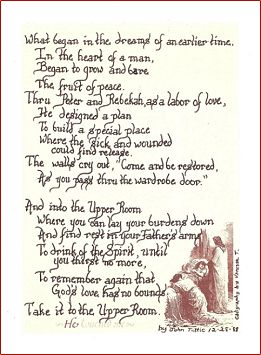 What began in the dreams of an earlier time.
In the heart of a man,
Began to grow and bare
The fruit of peace.
Thru Peter and Rebekah, as a labor of love,
He designed a plan
To build a special place
Where the sick and wounded
could find release.
The walls cry out, "Come and be restored,
As you pass thru the wardrobe door."
And into the Upper Room
Where you can lay your burdens down
And find rest in your Father's arms
To drink of the Spirit, until
you thirst no more,
To remember again that
God's love has no bounds.
Take it to the Upper Room.
He
by John Tuttic 12-25-88
Calligraphy by T.